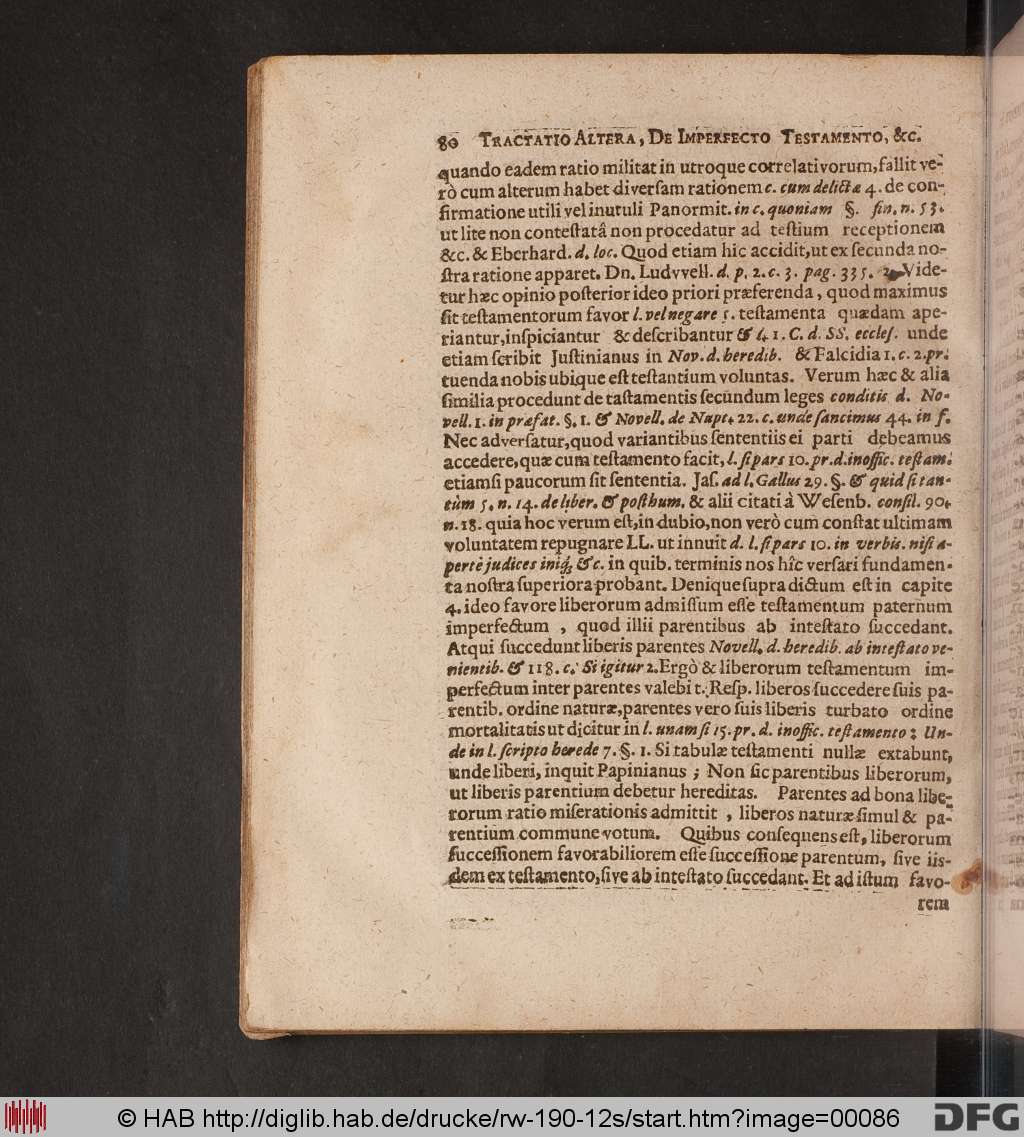 80 TRACTATIO ALTERA, DE IMPERFECTO TESTAMENTO, &c.
quando eadem ratio militat in utroque correlativorum, fallit ve-
rò cum alterum habet diversam rationem c. cum delictæ 4. de con-
firmatione utili vel inutuli Panormit. in c. quoniam §. fin. n. 53.
ut lite non contestatâ non procedatur ad testium receptionem
&c. & Eberhard. d. loc. Quod etiam hic accidit, ut ex secunda no-
stra ratione apparet. Dn. Ludvvell. d. p. 2. c. 3. pag. 335. 2. Vide-
tur hæc opinio posterior ideo priori præferenda, quod maximus
sit testamentorum favor l. vel negare 5. testamenta quædam ape-
riantur, inspiciantur & describantur & l. 1. C. d. SS. eccles. unde
etiam scribit Justinianus in Nov. d. heredib. & Falcidia 1. c. 2. pr.
tuenda nobis ubique est testantium voluntas. Verum hæc & alia
similia procedunt de tastamentis secundum leges conditis d. No-
vell. 1. in præfat. §. 1. & Novell. de Nupt. 22. c. unde sancimus 44. in f.
Nec adversatur, quod variantibus sententiis ei parti debeamus
accedere, quæ cum testamento facit, l. si pars 10. pr. d. inoffic. testam.
etiamsi paucorum sit sententia. Jas. ad l. Gallus 29. §. & quid si tan-
tùm 5. n. 14. de liber. & posthum. & alii citati à Wesenb. consil. 90.
n. 18. quia hoc verum est, in dubio, non verò cum constat ultimam
voluntatem repugnare LL. ut innuit d. l. si pars 10. in verbis. nisi a-
pertè judices iniq́; &c. in quib. terminis nos hîc versari fundamen-
ta nostra superiora probant. Denique supra dictum est in capite
4. ideo favore liberorum admissum esse testamentum paternum
imperfectum, quod illii parentibus ab intestato succedant.
Atqui succedunt liberis parentes Novell. d. heredib. ab intestato ve-
nientib. & 118. c. Si igitur 2. Ergò & liberorum testamentum im-
perfectum inter parentes valebit. Resp. liberos succedere suis pa-
rentib. ordine naturæ, parentes vero suis liberis turbato ordine
mortalitatis ut dicitur in l. unam si 15. pr. d. inoffic. testamento: Un-
de in l. scripto herede 7. §. 1. Si tabulæ testamenti nullæ extabunt,
unde liberi, inquit Papinianus; Non sic parentibus liberorum,
ut liberis parentium debetur hereditas. Parentes ad bona libe-
rorum ratio miserationis admittit, liberos naturæ simul & pa-
rentium commune votum. Quibus consequens est, liberorum
successionem favorabiliorem esse successione parentum, sive iis-
dem ex testamento, sive ab intestato succedant. Et ad istum favo-
rem
© HAB http://diglib.hab.de/drucke/rw-190-12s/start.htm?image=00086
DFG